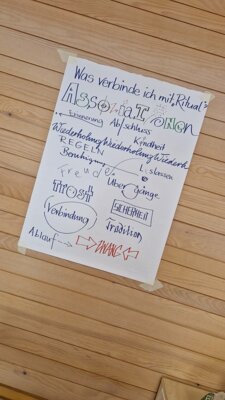 Was verbinde ich mit „Ritual"?
Assoziationen
Erinnerung
Abschluss
Kindheit
Wiederholung Wiederholung Wiederh
REGELN
Beruhigung
Loslassen
Freude
Übergänge
Trost
SICHERHEIT
Verbindung
Tradition
Ablauf